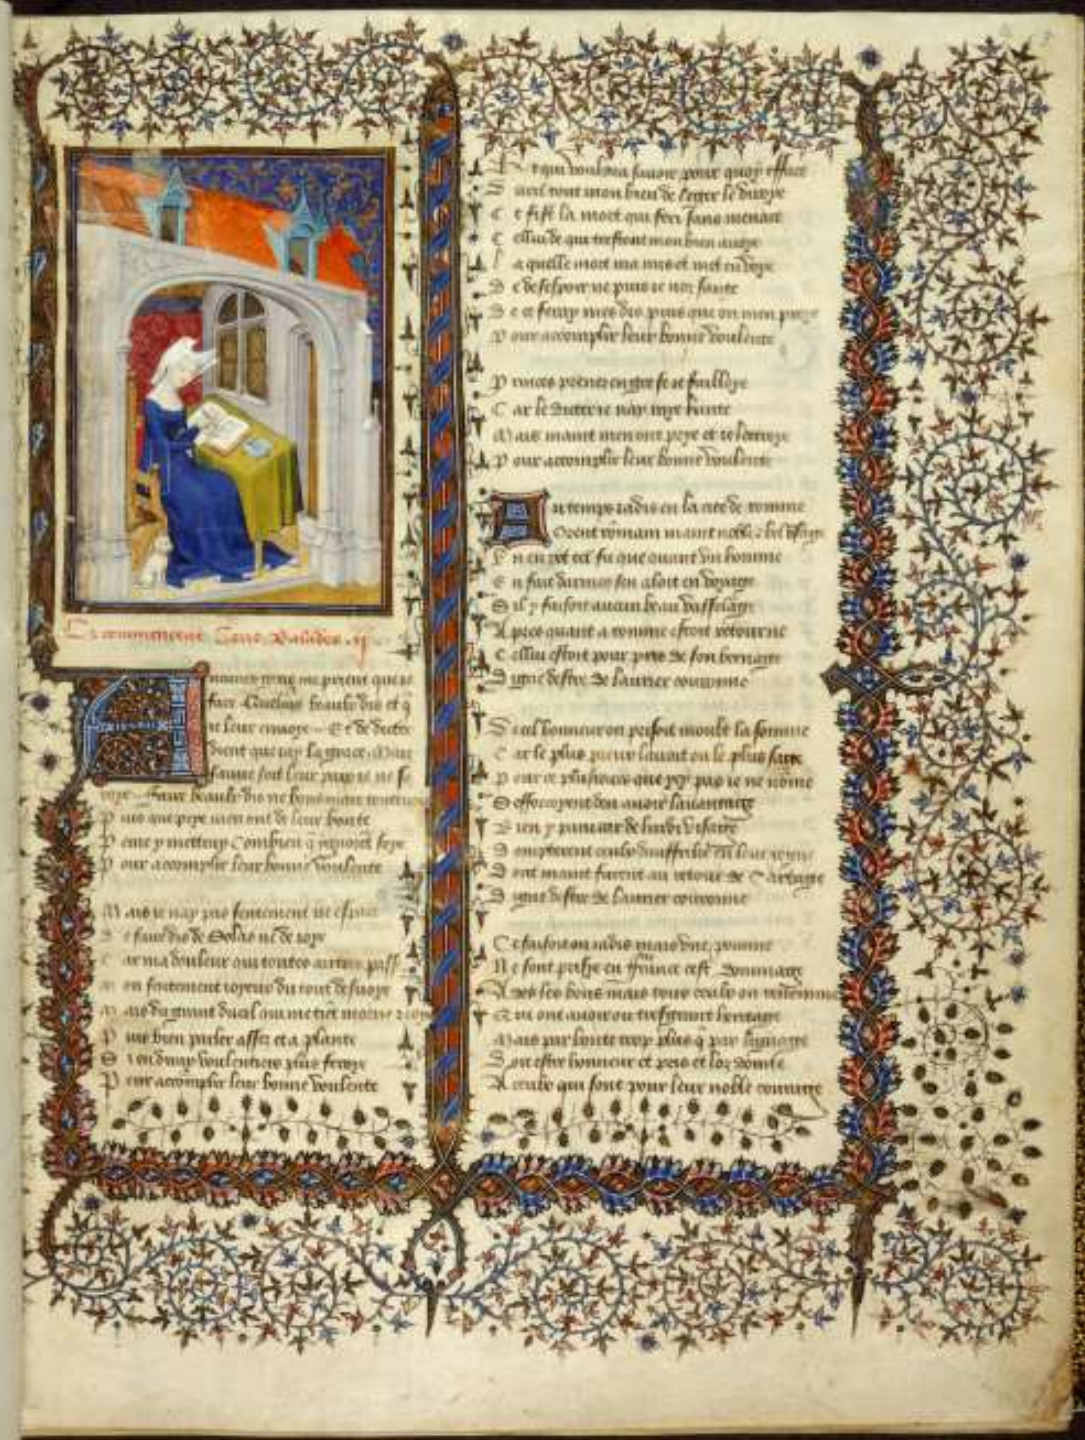 Cy commencent Cent Balades . j
Aucunes gens me prient que ie
face Aucuns beaulx diz et q
ie leur enuoye Et de dictier
dient que iay la grace Mais
sauue soit leur paix ie ne sa
roye faire beaulx diz ne bons mais
Puis que prye men ont de leur bonte
Peine y mettray combien q ignorent soye
Pour acomplir leur bonne voulente
Mais ie nay pas sentement ne espace
De faire diz de Solas ne de ioye
Car ma douleur qui toutes autres passe
Mon sentement ioyeux du tout desuoye
Mais du grant dueil qui me tient morne
Puis bien parler assez et a plante
Si en diray voulentiers plus feroye
Pour acomplir leur bonne voulente
Et qui vouldra sauoir pour quoy efface
Dueil tout mon bien de legier le diroye
Ce fist la mort qui feri sans menace
Cellui de qui trestout mon bien auoye
Laquelle mort ma mis et met en voye
De desespoir ne puis ie noz sante
De ce feray mes diz puis que on men proye
Pour acomplir leur bonne voulente
Princes prenez en gre se ie failloye
Car le dictier ie nay mye hante
Mais maint men ont prye et ie lottroye
Pour acomplir leur bonne voulente
Au temps iadis en la cite de romme
Orent rommains maint noble et bel usage
Un en y ot tel fu que quant un homme
En fait darmes sen aloit en voyage
Sil y faisoit aucun beau vasselage
Apres quant a romme estoit retourne
Cellui estoit pour pris de son bernage
Digne destre de laurier couronne
De cel honneur on prisoit moult la somme
Car le plus preux lauoit ou le plus sage
Pour ce plusieurs que cy pas ie ne nomme
Sefforcoyent den auoir lauantage
Bien y paru car de hardi visage
Dompterent ceulx daufrique en leur regne
Dont maint furent au retour de Cartage
Digne destre de laurier couronne
Ce faisoit on iadis mais une pomme
Ne sont prisez en ffrance cest dommage
Adez les bons mais tous ceulx on renomme
Qui ont auoir ou tresgrant heritage
Mais par bonte trop plus q par lignage
Doit estre honneur et pris et loz donne
A ceulx qui sont pour leur noble courage